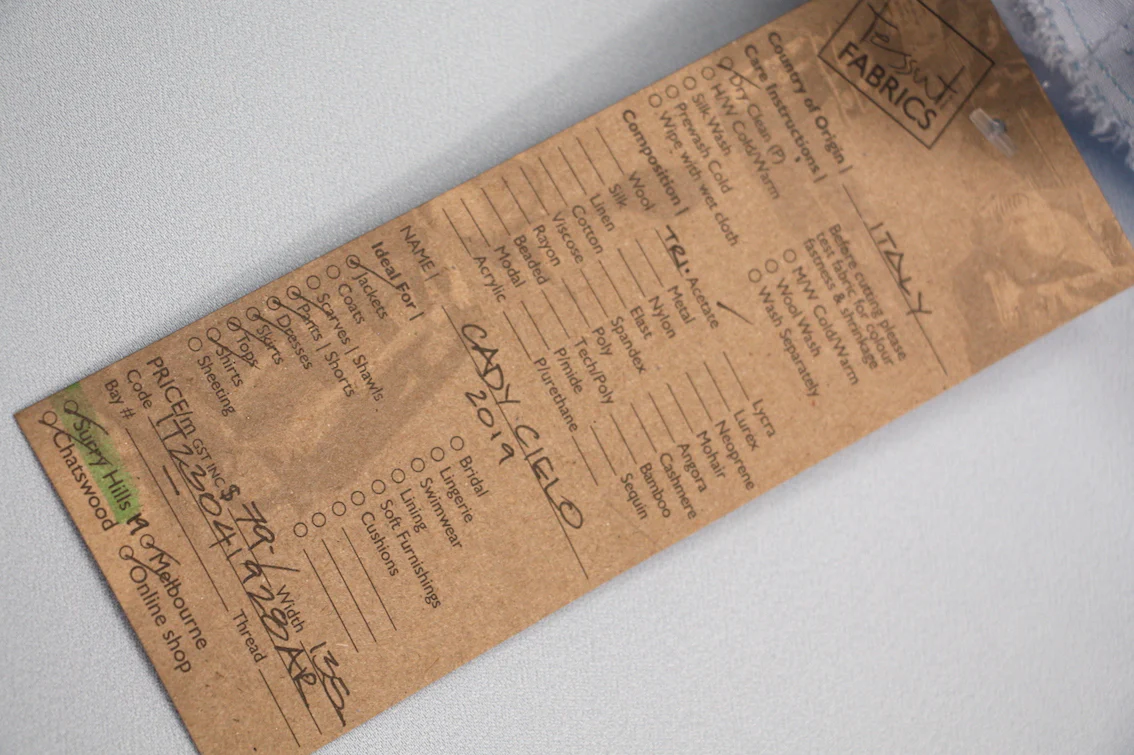 tessuti
FABRICS
Country of Origin | ITALY
Care Instructions |
Dry Clean (P)
H/W Cold/Warm
Silk Wash
Prewash Cold
Wipe with wet cloth
Before cutting please
test fabric for colour
fastness & shrinkage
M/W Cold/Warm
Wool Wash
Wash Separately
Composition |
Wool TRI. Acetate ✓ Lycra
Silk Metal Lurex
Linen Nylon Neoprene
Cotton Elast Mohair
Viscose Spandex Angora
Rayon Poly Cashmere
Beaded Tech/Poly Bamboo
Modal P/mide Sequin
Acrylic P/urethane
NAME | CADY CIELO
2019
Ideal For |
Jackets
Coats
Scarves | Shawls
Pants | Shorts
Dresses
Skirts
Tops
Shirts
Sheeting
Bridal
Lingerie
Swimwear
Lining
Soft Furnishings
Cushions
PRICE/m GST INC $ 79.- / Width 135
Code
Bay # Thread
Surry Hills Melbourne
Chatswood Online shop